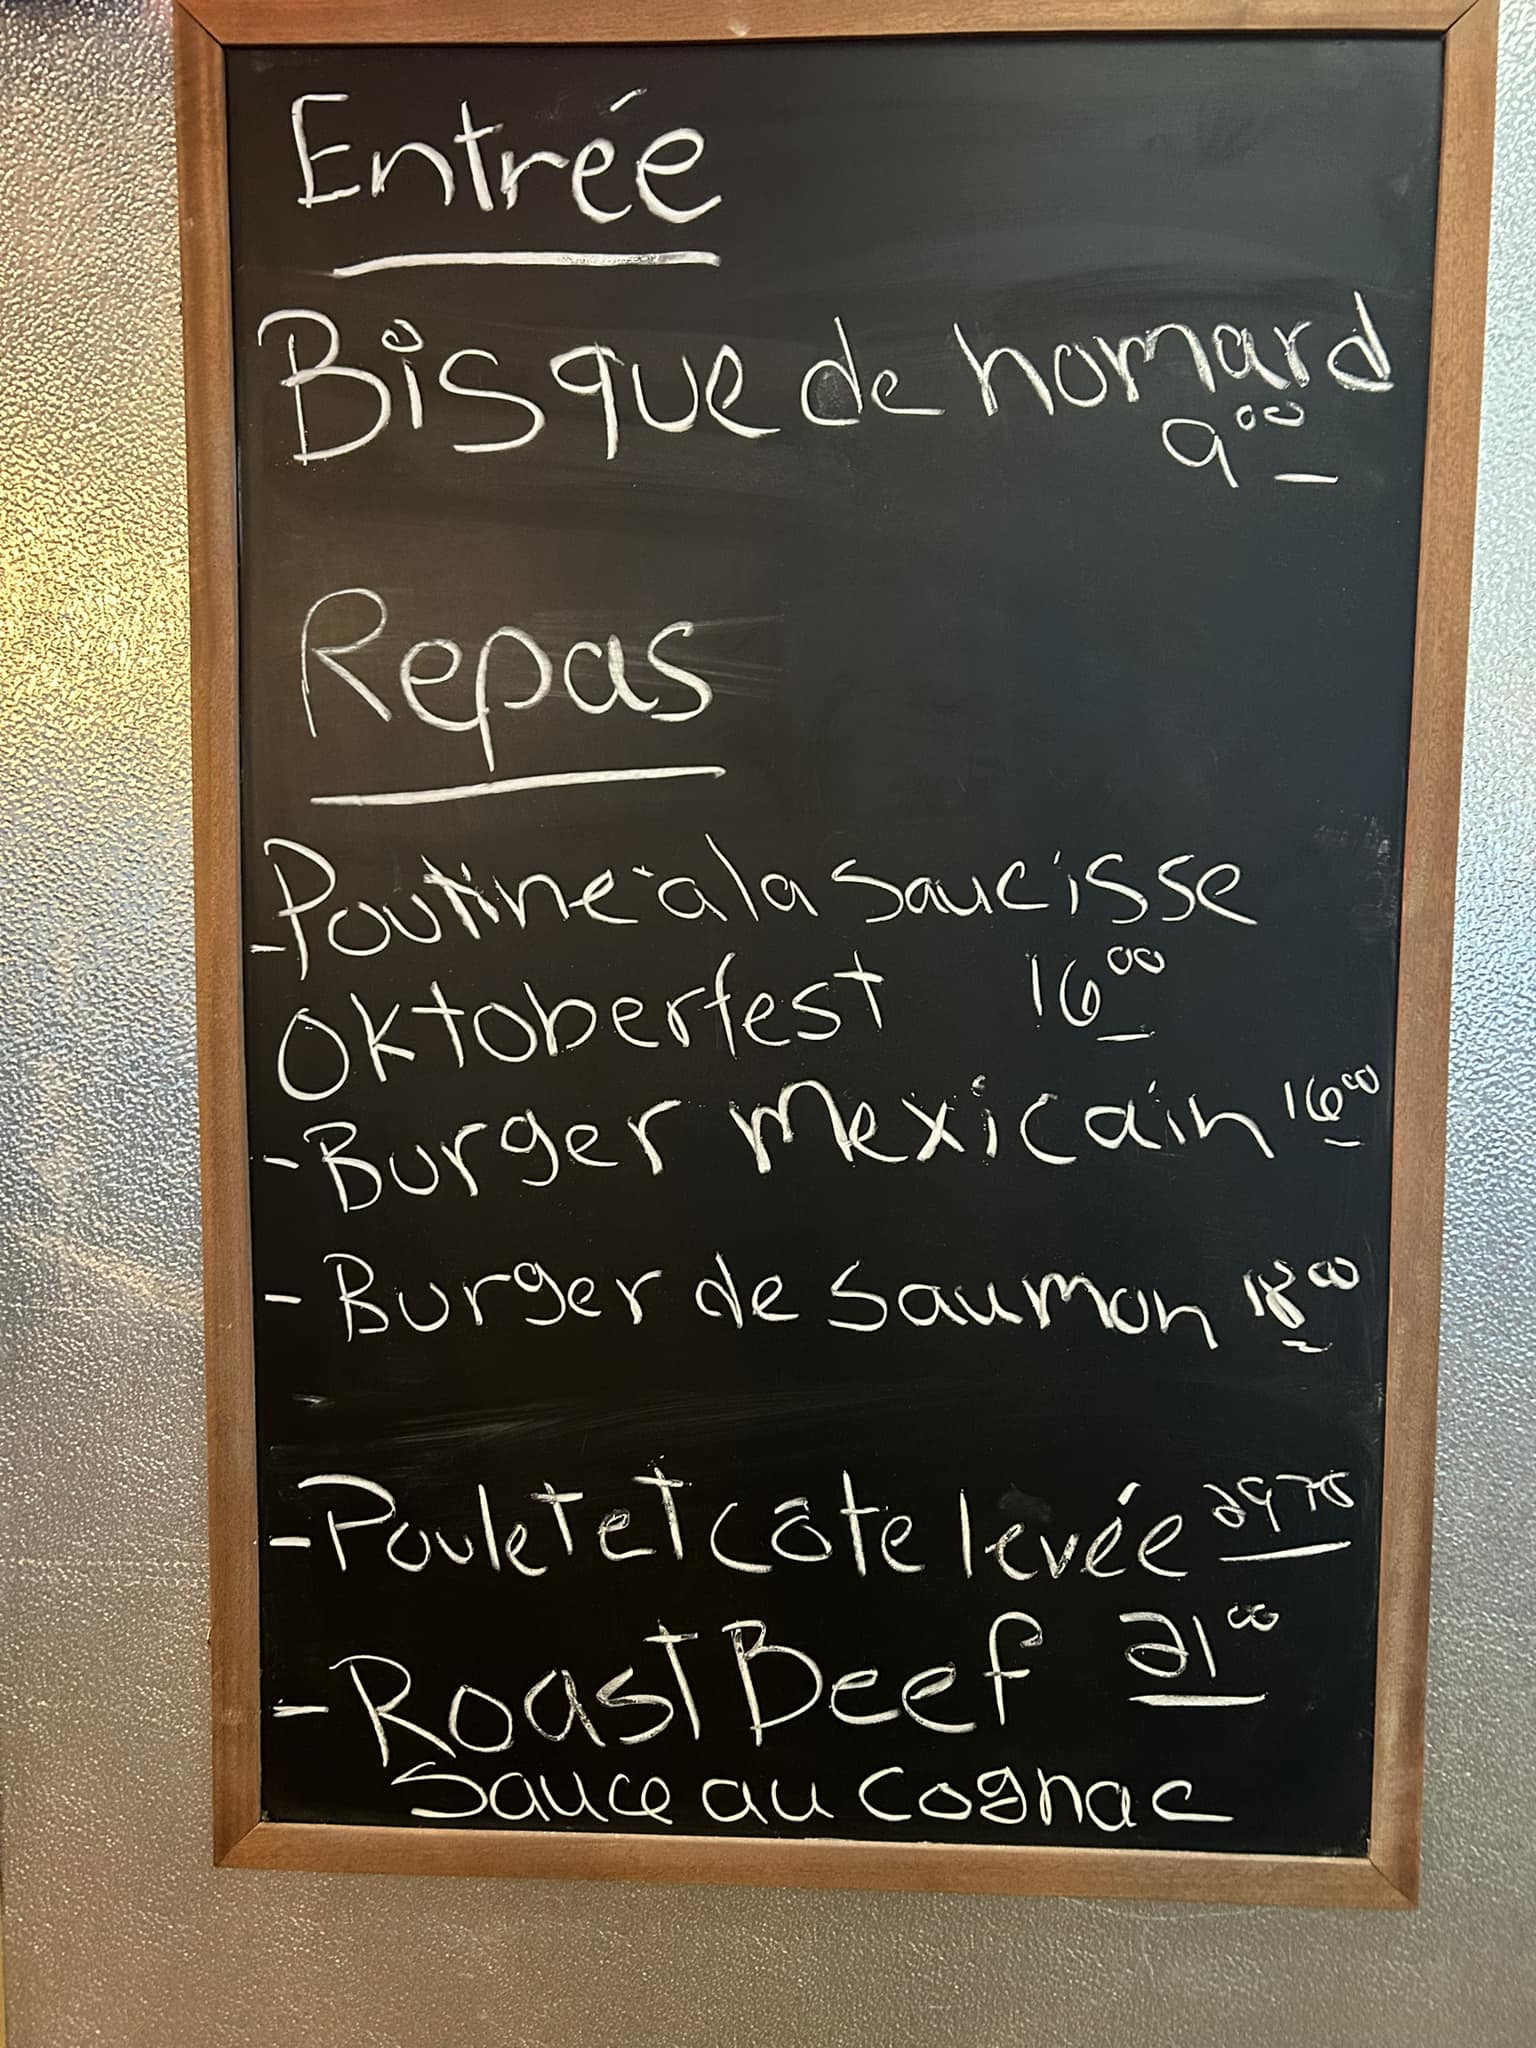 Entrée
Bisque de homard
9.00
Repas
-Poutine à la saucisse
Oktoberfest 16.00
-Burger Mexicain 16.00
-Burger de saumon 18.00
-Poulet et côte levée 29.75
-Roast Beef 21.00
sauce au cognac